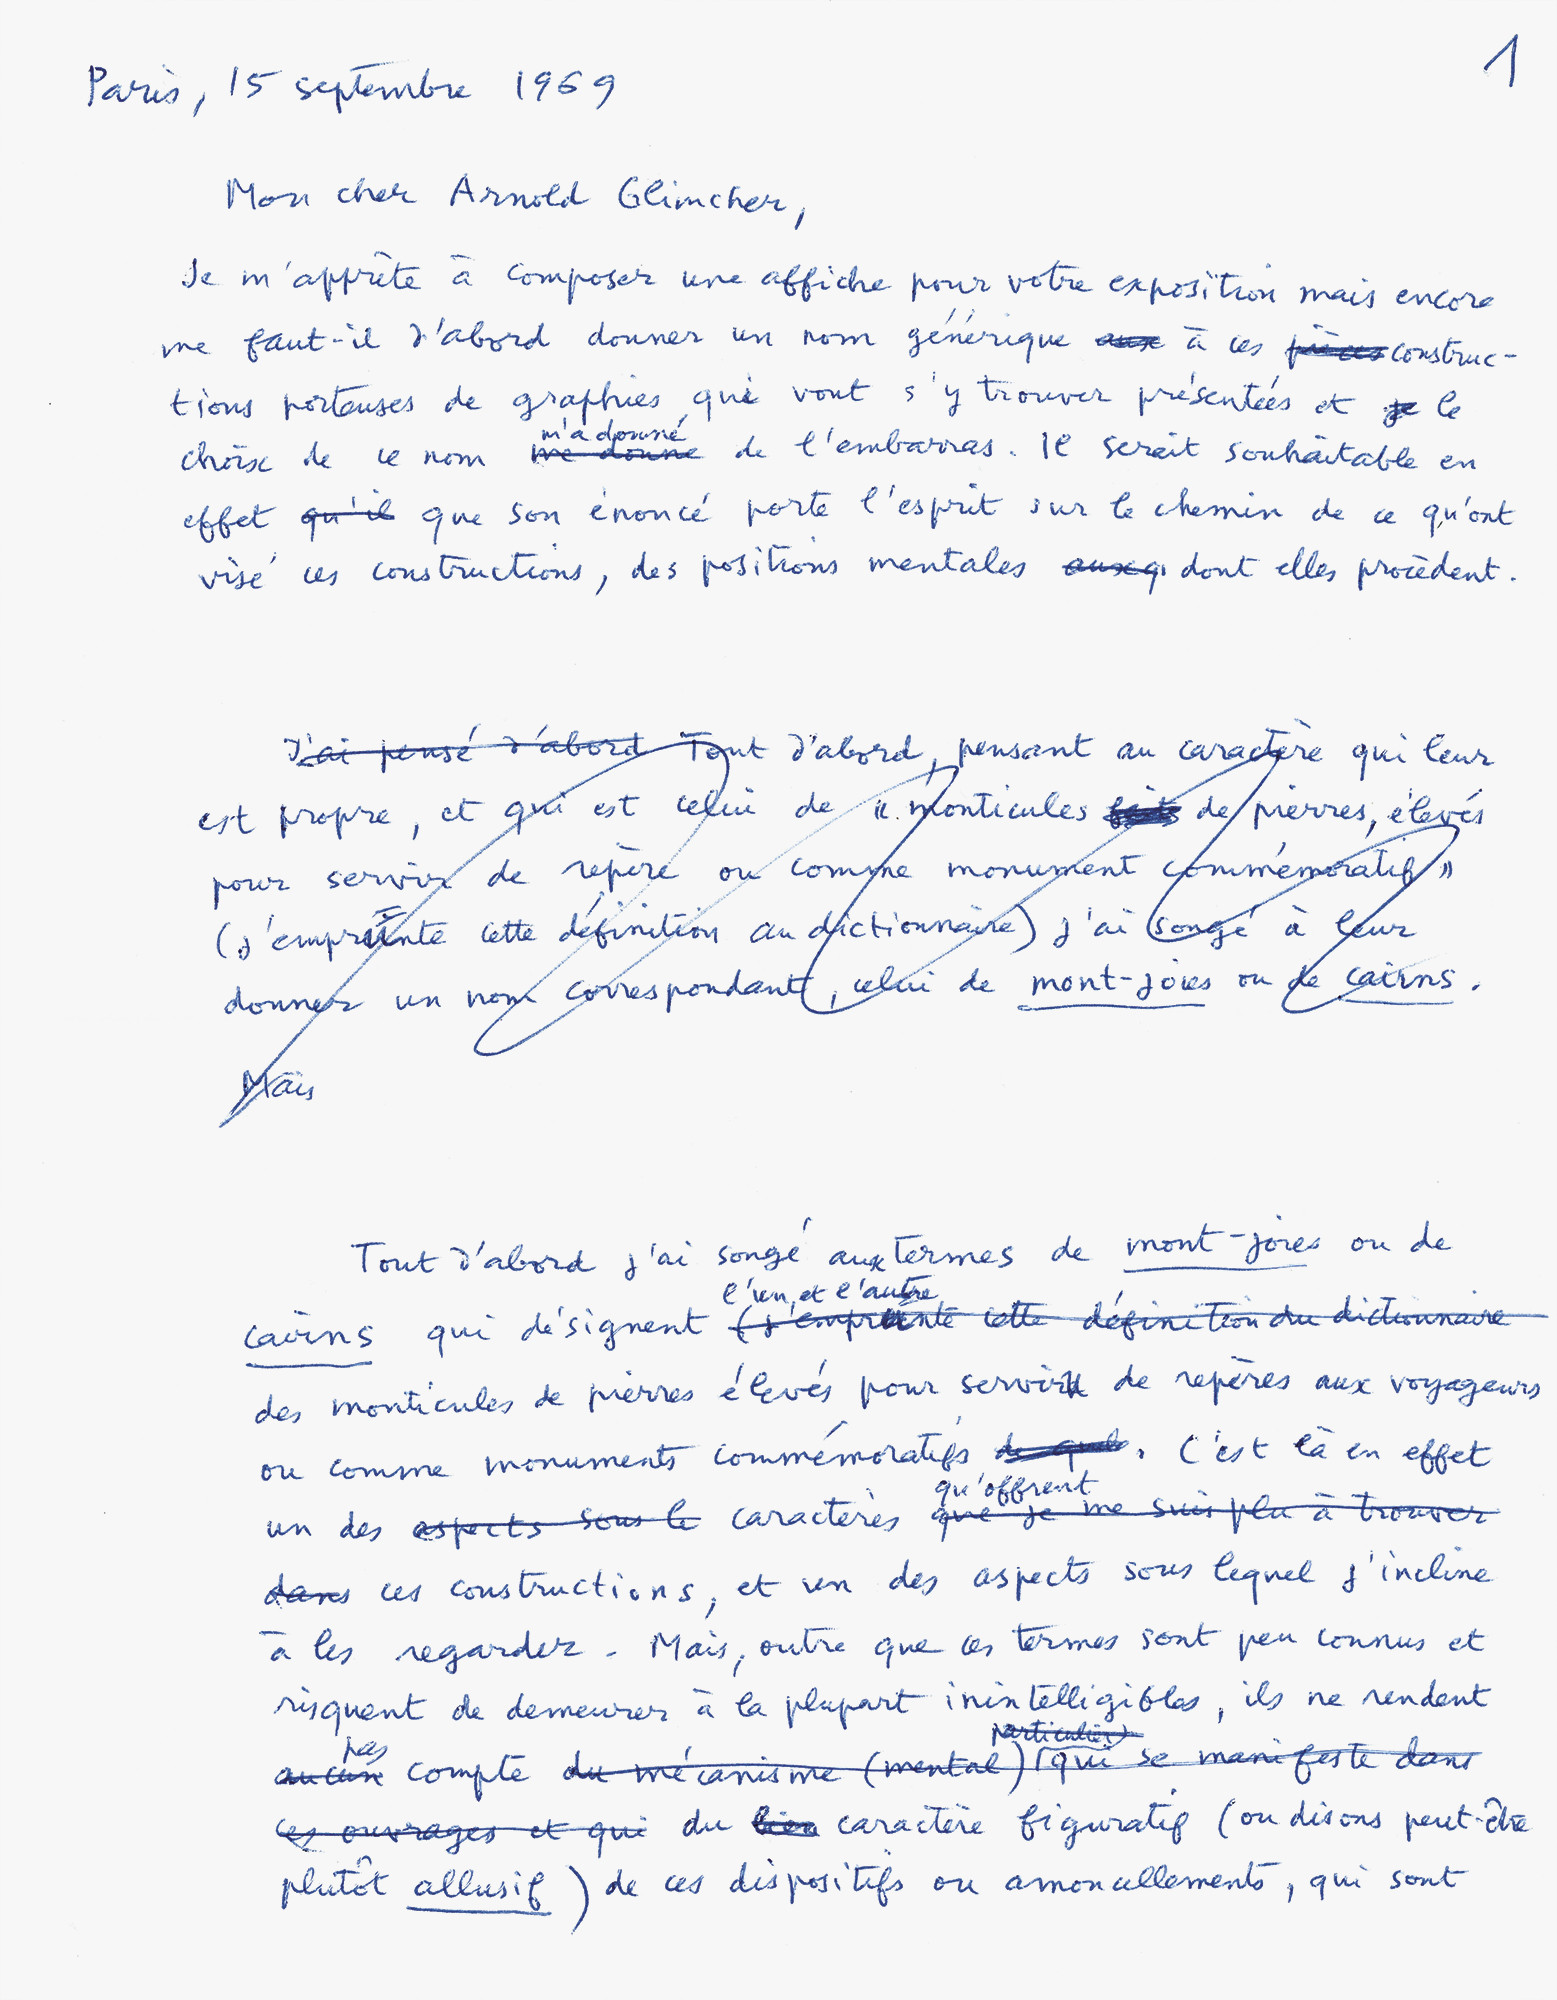 1
Paris, 15 septembre 1969
Mon cher Arnold Glimcher,
Je m'apprête à composer une affiche pour votre exposition mais encore
me faut-il d'abord donner un nom générique aux à ces pièces construc-
tions porteuses de graphies qui vont s'y trouver présentées et je le
m'a donné
choix de ce nom me donne de l'embarras. Il serait souhaitable en
effet qu'il que son énoncé porte l'esprit sur le chemin de ce qu'ont
visé ces constructions, des positions mentales auxq dont elles procèdent.
J'ai pensé d'abord Tout d'abord, pensant au caractère qui leur
est propre, et qui est celui de « monticules faits de pierres, élevés
pour servir de repère ou comme monument commémoratif »
(j'emprunte cette définition au dictionnaire) j'ai songé à leur
donner un nom correspondant, celui de mont-joies ou de cairns.
Mais
Tout d'abord j'ai songé aux termes de mont-joies ou de
l'un et l'autre
cairns qui désignent (j'emprunte cette définition du dictionnaire
des monticules de pierres élevés pour servir de repères aux voyageurs
ou comme monuments commémoratifs. C'est là en effet
qu'offrent
un des aspects sous le caractères que je me suis plu à trouver
dans ces constructions, et un des aspects sous lequel j'incline
à les regarder. Mais, outre que ces termes sont peu connus et
risquent de demeurer à la plupart inintelligibles, ils ne rendent
pas particulier
aucun compte du mécanisme (mental) qui se manifeste dans
ces ouvrages et qui du lien caractère figuratif (ou disons peut-être
plutôt allusif) de ces dispositifs ou amoncellements, qui sont